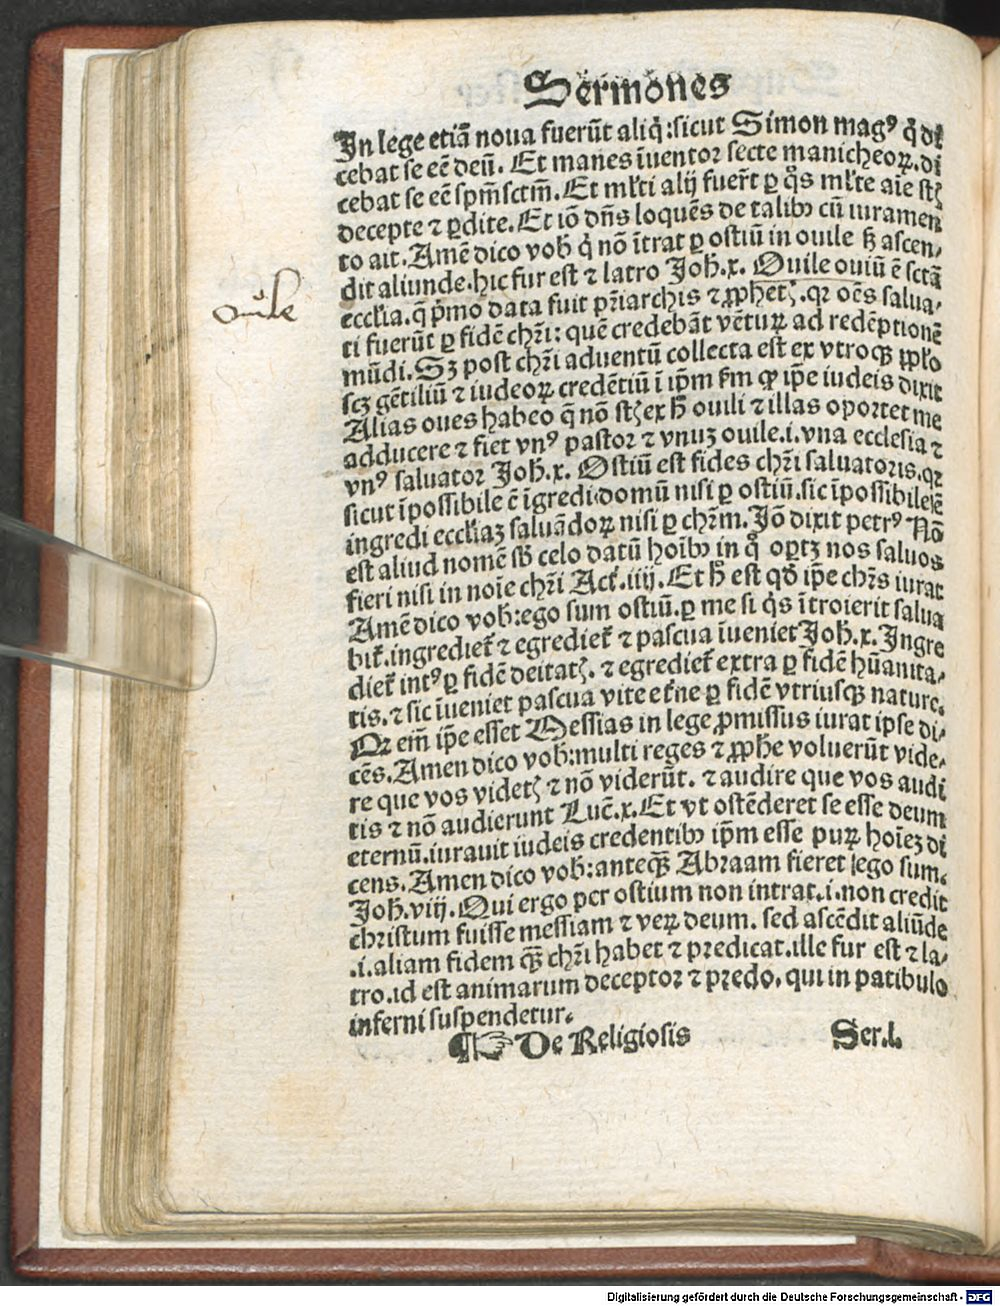 Sermones
In lege etiā noua fuerūt aliq̄ :sicut Simon magꝰ q̄ di
cebat se eē deū. Et manes īuentor secte manicheoꝝ. di
cebat se eē spm̄sctm̄. Et ml̄ti alij fuer̄t ꝑ q̄s ml̄te aīe st̄
decepte ⁊ ꝑdite. Et iō dn̄s loquēs de talibꝰ cū iuramen
to ait. Amē dico vob̄ q̄ nō ītrat ꝑ ostiū in ouile s̄ ascen-
dit aliunde. hic fur est ⁊ latro Joh̄.x. Ouile ouiū ē sctā
eccl̄ia. q̄ p̄mo data fuit pr̄iarchis ⁊ ꝓphet. qꝛ oēs salua-
ti fuerūt ꝑ fidē chr̄i: quē credebāt vētuꝝ ad redēptionē
mūdi. Sꝫ post chr̄i aduentū collecta est ex vtroqꝫ ppl̄o
scꝫ gētiliū ⁊ iudeoꝝ credētiū ī ip̄m s̄m ꝙ ip̄e iudeis dixit
Alias oues habeo q̄ nō st̄ ex h̄ ouili ⁊ illas oportet me
adducere ⁊ fiet vnꝰ pastor ⁊ vnuꝫ ouile.i.vna ecclesia ⁊
vnꝰ saluator Joh̄.x. Ostiū est fides chr̄i saluatoris. qꝛ
sicut īpossibile ē īgredi domū nisi ꝑ ostiū. sic īpossibile ē
ingredi eccl̄iaꝫ saluādoꝝ nisi ꝑ chr̄m. Jō dixit petrꝰ Nō
est aliud nomē sb̄ celo datū hoībꝰ in q̄ oꝑtꝫ nos saluos
fieri nisi in noīe chr̄i Act̄.iiij. Et h̄ est qd̄ ip̄e chr̄s iurat
Amē dico vob̄: ego sum ostiū. ꝑ me si q̄s ītroierit salua
bit̄. ingrediet̄ ⁊ egrediet̄ ⁊ pascua īueniet Joh̄.x. Ingre
diet̄ intꝰ ꝑ fidē deitat. ⁊ egrediet̄ extra ꝑ fidē hūanita-
tis. ⁊ sic īueniet pascua vite et̄ne ꝑ fidē vtriusqꝫ nature.
Qꝛ em̄ ip̄e esset Messias in lege ꝓmissus iurat ipse di-
cēs. Amen dico vob̄: multi reges ⁊ ꝓphe voluerūt vide-
re que vos videt ⁊ nō viderūt. ⁊ audire que vos audi
tis ⁊ nō audierunt Luc̄.x. Et vt ostēderet se esse deum
eternū. iurauit iudeis credentibꝰ ip̄m esse puꝝ hoīeꝫ di
cens. Amen dico vob̄: anteqꝫ Abraam fieret ego sum.
Joh̄.viij. Qui ergo per ostium non intrat.i.non credit
christum fuisse messiam ⁊ veꝝ deum. sed ascēdit aliūde
.i.aliam fidem qꝫ chr̄i habet ⁊ predicat. ille fur est ⁊ la-
tro. id est animarum deceptor ⁊ predo. qui in patibulo
inferni suspendetur.
¶ ☞ De Religiosis Ser.l.
ouile
Digitalisierung gefördert durch die Deutsche Forschungsgemeinschaft - DFG